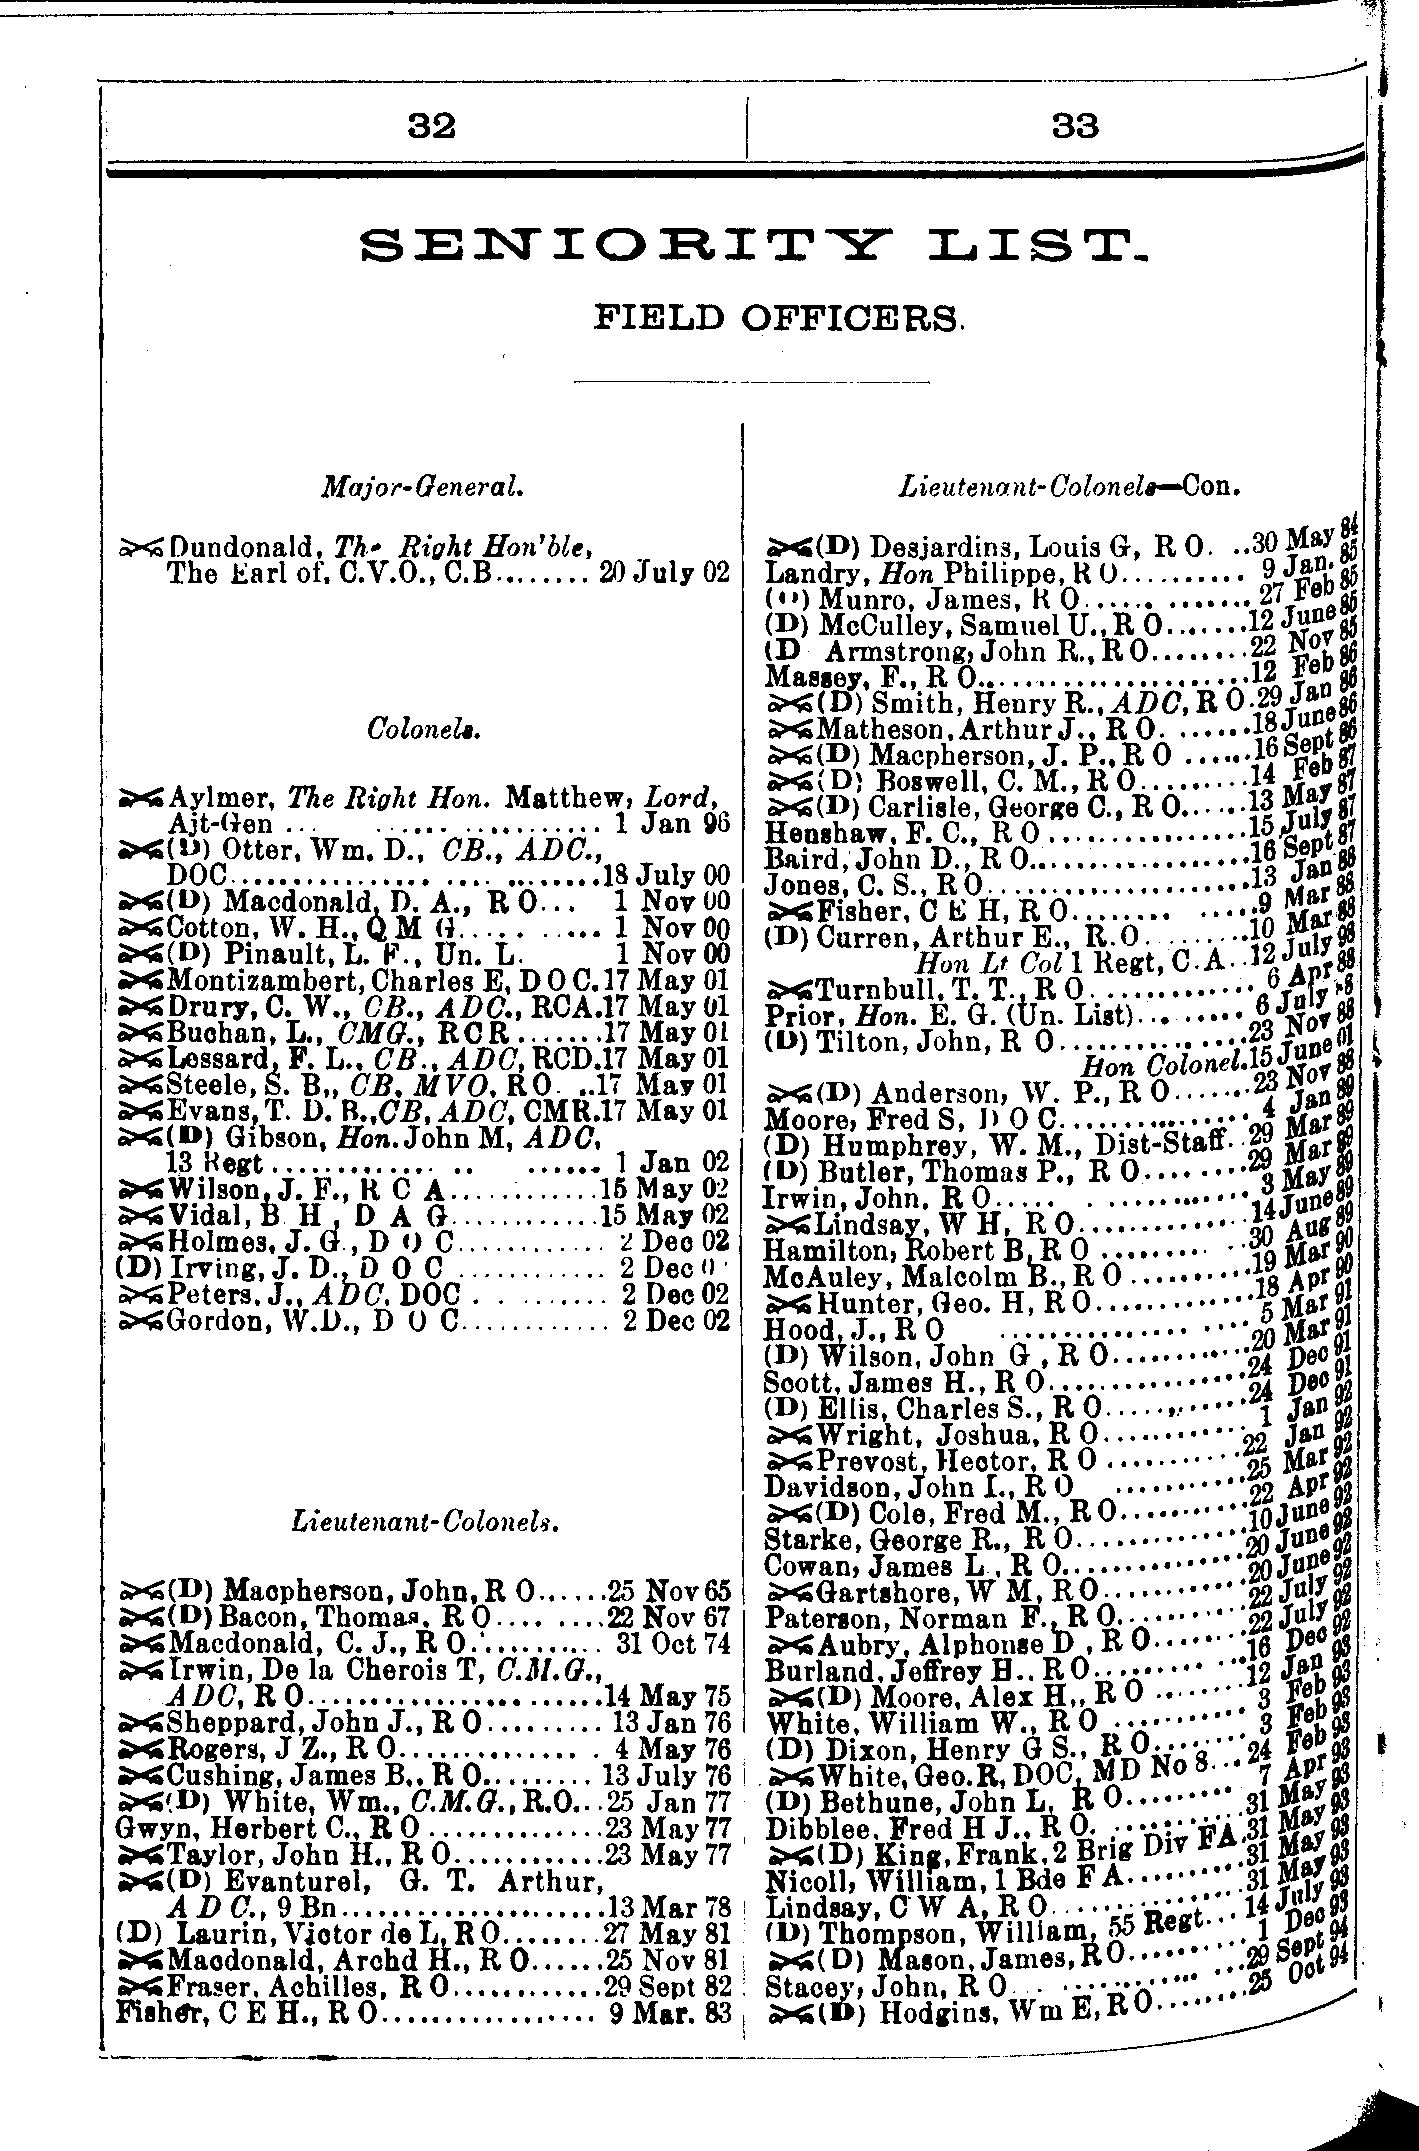 32
33
SENIORITY LIST.
FIELD OFFICERS.
Major-General.
Dundonald, The Right Hon'ble,
The Earl of, C.V.O., C.B........ 20 July 02
Colonels.
Aylmer, The Right Hon. Matthew, Lord,
Ajt-Gen ... ...... ........... 1 Jan 96
(D) Otter, Wm. D., CB., ADC.,
DOC.....................18 July 00
(D) Macdonald, D. A., R O... 1 Nov 00
Cotton, W. H., Q M G..... ...... 1 Nov 00
(D) Pinault, L. F., Un. L. 1 Nov 00
Montizambert, Charles E, D O C.17 May 01
Drury, C. W., CB., ADC., RCA.17 May 01
Buchan, L., CMG., RCR.......17 May 01
Lessard, F. L., CB., ADC, RCD.17 May 01
Steele, S. B., CB, MVO, RO. ..17 May 01
Evans, T. D. B., CB, ADC, CMR.17 May 01
(D) Gibson, Hon. John M, ADC,
13 Regt ............. .. ...... 1 Jan 02
Wilson, J. F., R C A............15 May 02
Vidal, B H, D A G............15 May 02
Holmes, J. G., D O C............ 2 Dec 02
(D) Irving, J. D., D O C ............ 2 Dec
Peters, J., ADC, DOC . ......... 2 Dec 02
Gordon, W.D., D O C............ 2 Dec 02
Lieutenant-Colonels.
(D) Macpherson, John, R O......25 Nov 65
(D) Bacon, Thomas, R O.... .....22 Nov 67
Macdonald, C. J., R O........... 31 Oct 74
Irwin, De la Cherois T, C.M.G.,
ADC, R O......................14 May 75
Sheppard, John J., R O......... 13 Jan 76
Rogers, J Z., R O............... . 4 May 76
Cushing, James B., R O......... 13 July 76
(D) White, Wm., C.M.G., R.O...25 Jan 77
Gwyn, Herbert C., R O ..............23 May 77
Taylor, John H., R O............23 May 77
(D) Evanturel, G. T. Arthur,
A D C., 9 Bn......................13 Mar 78
(D) Laurin, Victor de L, R O........27 May 81
Macdonald, Archd H., R O......25 Nov 81
Fraser, Achilles, R O............29 Sept 82
Fisher, C E H., R O................. 9 Mar. 83
Lieutenant-Colonels—Con.
(D) Desjardins, Louis G, R O. ..30 May 84
Landry, Hon Philippe, R O.......... 9 Jan. 85
(D) Munro, James, R O...... ....... 27 Feb 85
(D) McCulley, Samuel U., R O.......12 June 85
(D Armstrong, John R., R O........22 Nov 85
Massey, F., R O......................12 Feb 86
(D) Smith, Henry R., ADC, R O.29 Jan 86
Matheson, Arthur J., R O. .......18 June 86
(D) Macpherson, J. P., R O ......16 Sept 86
(D) Boswell, C. M., R O..........14 Feb 87
(D) Carlisle, George C., R O......13 May 87
Henshaw, F. C., R O ................15 July 87
Baird, John D., R O..................16 Sept 87
Jones, C. S., R O.....................13 Jan 88
Fisher, C E H, R O........ ..... 9 Mar 88
(D) Curren, Arthur E., R.O. ........10 Mar 88
Hon Lt Col 1 Regt, C.A..12 July 98
Turnbull, T. T., R O............. 6 Apr 88
Prior, Hon. E. G. (Un. List)... ..... 6 July
(D) Tilton, John, R O................23 Nov 88
Hon Colonel.15 June 01
(D) Anderson, W. P., R O.......23 Nov 88
Moore, Fred S, D O C................ 4 Jan 89
(D) Humphrey, W. M., Dist-Staff..29 Mar 89
(D) Butler, Thomas P., R O........29 Mar 89
Irwin, John, R O..... ........... 3 May 89
Lindsay, W H, R O..............14 June 89
Hamilton, Robert B, R O ......... ..30 Aug 89
McAuley, Malcolm B., R O ..........19 Mar 90
Hunter, Geo. H, R O..............18 Apr 90
Hood, J., R O ............... .... 5 Mar 91
(D) Wilson, John G, R O............20 Mar 91
Scott, James H., R O................24 Dec 91
(D) Ellis, Charles S., R O...........24 Dec 91
Wright, Joshua, R O............ 1 Jan 92
Prevost, Hector, R O ...........22 Jan 92
Davidson, John I., R O ...........25 Mar 92
(D) Cole, Fred M., R O..........22 Apr 92
Starke, George R., R O..............10 June 92
Cowan, James L, R O................20 June 92
Gartshore, W M, R O............20 June 92
Paterson, Norman F., R O...........22 July 92
Aubry, Alphonse D, R O........22 July 92
Burland, Jeffrey H., R O...........16 Dec 92
(D) Moore, Alex H., R O ........12 Jan 93
White, William W., R O ........... 3 Feb 93
(D) Dixon, Henry G S., R O........ 3 Feb 93
White, Geo. R, DOC, MD No 8...24 Feb 93
(D) Bethune, John L, R O......... 7 Apr 93
Dibblee, Fred H J., R O............31 May 93
(D) King, Frank, 2 Brig Div FA.31 May 93
Nicoll, William, 1 Bde F A.........31 May 93
Lindsay, C W A, R O...............31 May 93
(D) Thompson, William, 55 Regt...14 July 93
(D) Mason, James, R O......... 1 Dec 93
Stacey, John, R O... ............ ...29 Sept 94
(D) Hodgins, Wm E, R O........25 Oct 94